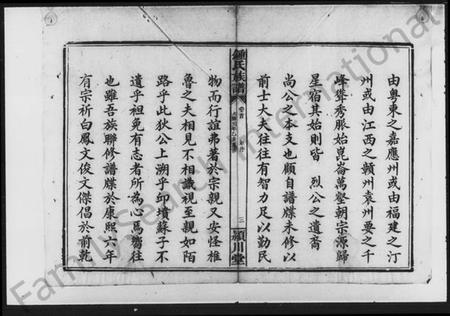 由粵東之嘉應州或由福建之汀
州或由江西之贛州袁州要之千
峰聳秀脈始崑崙萬壑朝宗源歸
星宿其始則皆 烈公之遺裔
尚公之本支也顧自譜牒未修以
前士大夫往往有智力足以勤民
鍾氏族譜
卷首
三 潁川堂
物而行誼弗著於宗親又安怪椎
魯之夫相見不相識視至親如陌
路乎此狄公上溯乎邱墳蘇子不
遺乎袒免有志者所為心焉嚮往
也雖吾族聯修譜牒於康熙六年
有宗祈白鳳文俊文傑倡於前乾
FamilySearch International